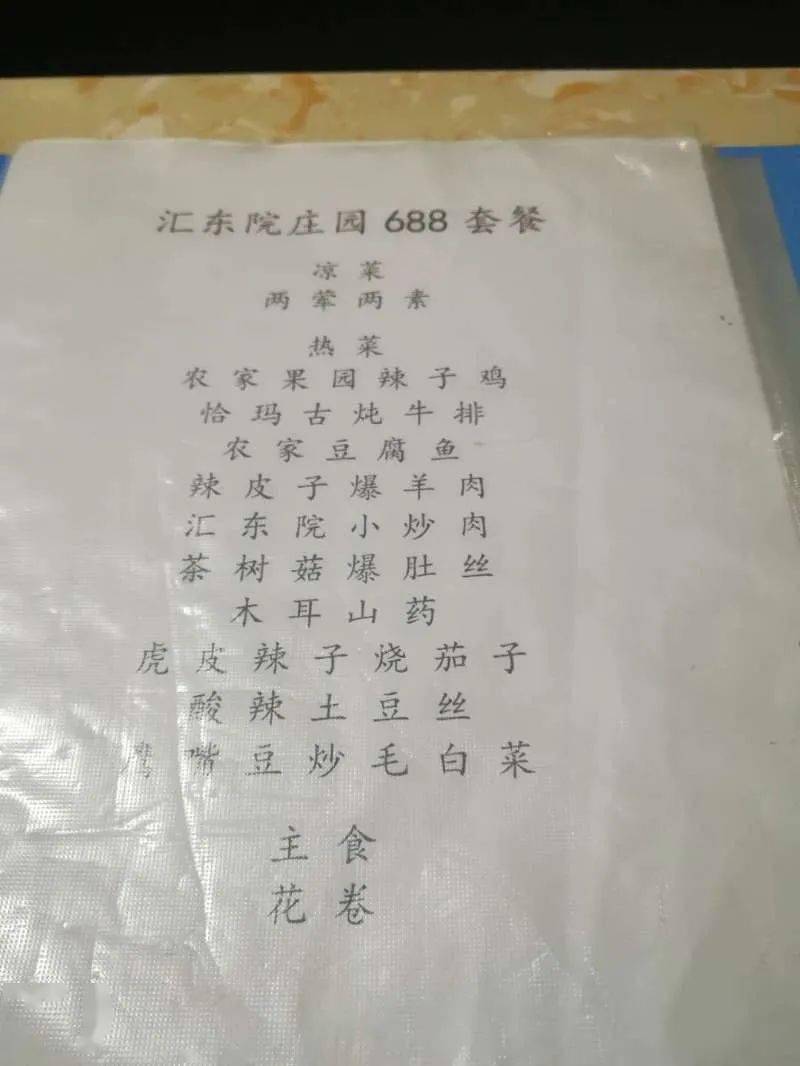 汇东院庄园 688 套餐
凉菜
两荤两素
热菜
农家果园辣子鸡
恰玛古炖牛排
农家豆腐鱼
辣皮子爆羊肉
汇东院小炒肉
茶树菇爆肚丝
木耳山药
虎皮辣子烧茄子
酸辣土豆丝
鹰嘴豆炒毛白菜
主食
花卷